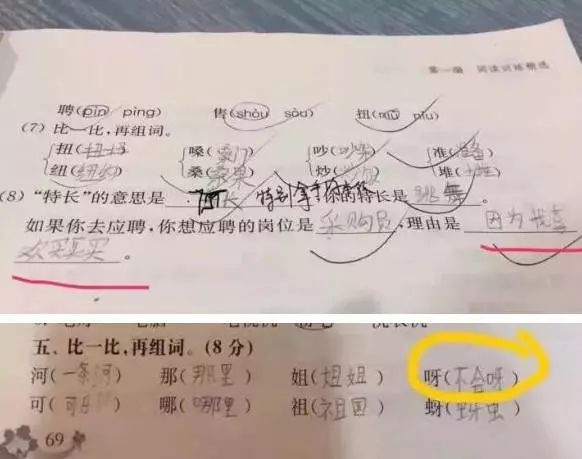 第一册 阅读训练精选
聘(pìn pìng) 售(shòu sòu) 扭(niǔ niu)
(7) 比一比,再组词。
扭( ) 嗓(嗓门) 吵(吵架) 准(准备)
纽(纽扣) 桑(桑果) 炒( ) 堆( )
(8) “特长”的意思是 特别拿手 你的特长是 跳舞 。
如果你去应聘,你想应聘的岗位是 采购员 ,理由是 因为我喜
欢买买买 。
五、比一比,再组词。(8分)
河(一条河) 那(那里) 姐(姐姐) 呀(不会呀)
可(可乐) 哪(哪里) 祖(祖国) 蚜(蚜虫)
69